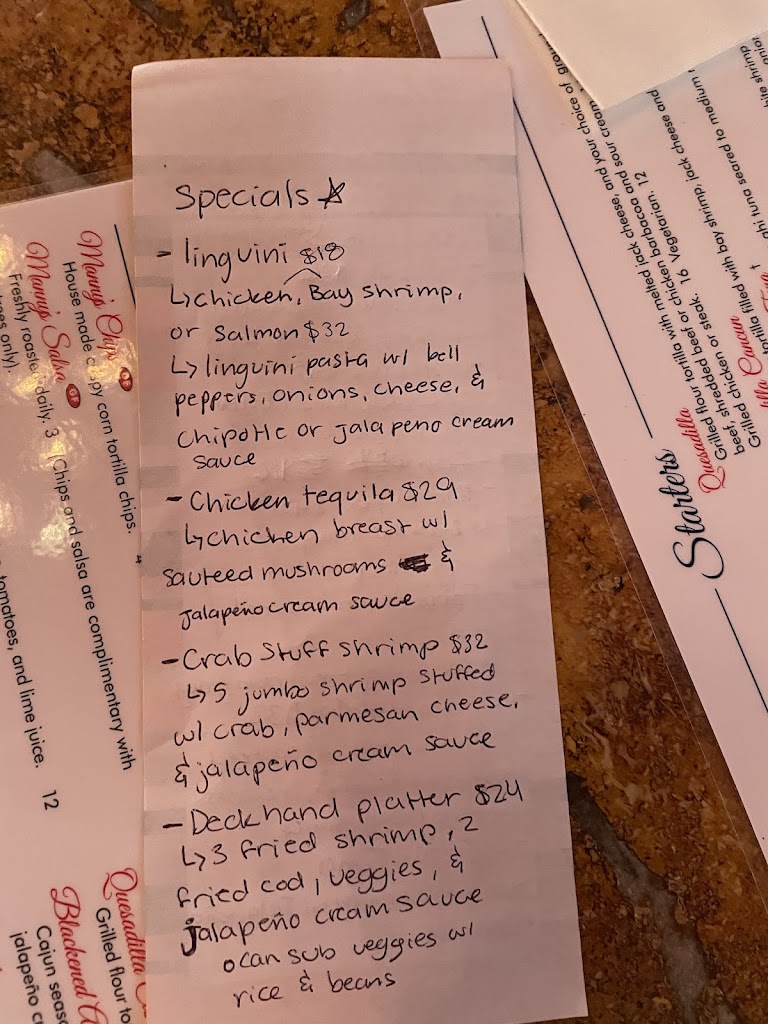 Specials
- linguini $18
↳chicken, Bay shrimp,
or salmon $32
↳linguini pasta w/ bell
peppers, onions, cheese, &
chipotle or jalapeno cream
sauce
- Chicken tequila $29
↳chicken breast w/
sauteed mushrooms &
jalapeño cream sauce
- Crab Stuff shrimp $32
↳5 jumbo shrimp stuffed
w/ crab, parmesan cheese,
& jalapeño cream sauce
- Deckhand platter $24
↳3 fried shrimp, 2
fried cod, veggies, &
jalapeño cream sauce
o can sub veggies w/
rice & beans
Manny's Chips GF
House made crispy corn tortilla chips.
Manny's Salsa GF
Freshly roasted daily. 3 (Chips and salsa are complimentary with
only).
tomatoes, and lime juice. 12
Quesadilla
Grilled flour to
Blackened
Cajun seas
jalapeño c
Starters
Quesadilla
Grilled flour tortilla with melted jack cheese, and your choice of
beef, shredded beef or chicken barbacoa and sour cream. 12
Grilled chicken or steak. 16 Vegetarian. 12
Cancun
tortilla filled with bay shrimp, jack cheese and
ahi tuna seared to medium